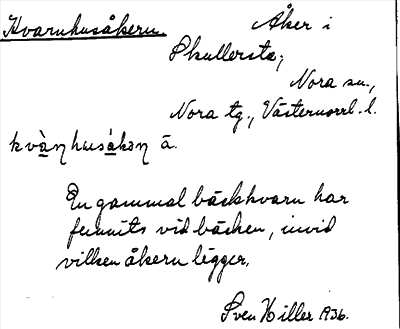 Kvarnhusåkern. Åker i
Skullersta,
Nora sn.,
Nora tg., Västernorrl. l.
kvàηhusákəη ā.
En gammal bäckkvarn har
funnits vid bäcken, invid
vilken åkern ligger.
Sven Hiller 1936.